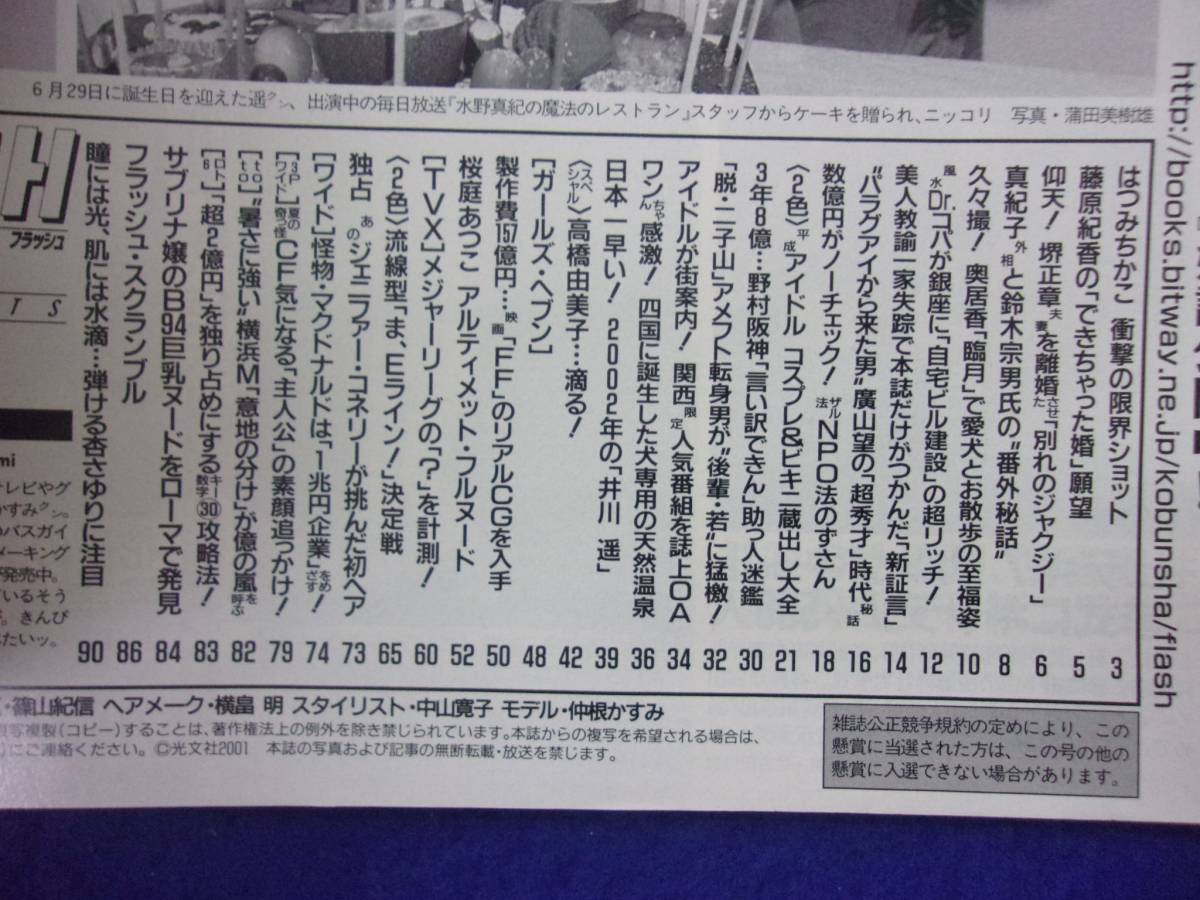 6月29日に誕生日を迎えた遥クン、出演中の毎日放送『水野真紀の魔法のレストラン』スタッフからケーキを贈られ、ニッコリ 写真・蒲田美樹雄
http://books.bitway.ne.jp/kobunsha/flash
はつみちかこ 衝撃の限界ショット 3
藤原紀香の「できちゃった婚」願望 5
仰天！ 堺正章夫妻を離婚させた「別れのジャクジー」 6
真紀子外相と鈴木宗男氏の“番外秘話” 8
久々撮！ 奥居香「臨月」で愛犬とお散歩の至福姿 10
風水Dr.コパが銀座に「自宅ビル建設」の超リッチ！ 12
美人教諭一家失踪で本誌だけがつかんだ「新証言」 14
“パラグアイから来た男”廣山望の「超秀才」時代秘話 16
数億円がノーチェック！ ザル法NPO法のずさん 18
〈2色〉平成アイドル コスプレ&ビキニ蔵出し大全 21
3年8億…野村阪神「言い訳できん」助っ人迷鑑 30
「脱・二子山」アメフト転身男が“後輩・若”に猛檄！ 32
アイドルが街案内！ 関西限定人気番組を誌上OA 34
ワンちゃん感激！ 四国に誕生した犬専用の天然温泉 36
日本一早い！ 2002年の「井川 遥」 39
〈スペシャル〉高橋由美子…滴る！ 42
[ガールズ・ヘブン] 48
製作費157億円…映画「FF」のリアルCGを入手 50
桜庭あつこ アルティメット・フルヌード 52
[TVX]メジャーリーグの「？」を計測！ 60
〈2色〉流線型「ま、Eライン！」決定戦 65
独占 あのジェニファー・コネリーが挑んだ初ヘア 73
[ワイド]怪物・マクドナルドは「1兆円企業」をめざす！ 74
[3Pワイド][夏の奇っ怪]CF気になる「主人公」の素顔追っかけ！ 79
[toto]“暑さに強い”横浜M「意地の分け」が億の嵐を呼ぶ 82
[ロト6]「超2億円」を独り占めにするキー数字㉚攻略法！ 83
サブリナ嬢のB94巨乳ヌードをローマで発見 84
フラッシュ・スクランブル 86
瞳には光、肌には水滴…弾ける杏さゆりに注目 90
フラッシュ
TS
mi
テレビやグ
かすみクン。
のバスガイ
メーキング
が発売中。
ているそう
。きんび
たいッ。
・篠山紀信 ヘアメーク・横畠 明 スタイリスト・中山寛子 モデル・仲根かすみ
複写複製（コピー）することは、著作権法上の例外を除き禁じられています。本誌からの複写を希望される場合は、
）にご連絡ください。 ©光文社2001 本誌の写真および記事の無断転載・放送を禁じます。
雑誌公正競争規約の定めにより、この
懸賞に当選された方は、この号の他の
懸賞に入選できない場合があります。